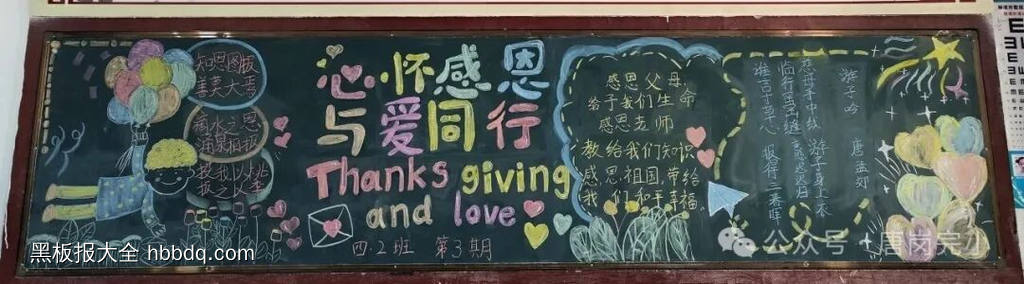 知恩图报
善莫大焉
滴水之恩
涌泉相报
投我以桃
报之以李
心怀感恩
与爱同行
Thanks giving
and love
四2班 第3期
感恩父母
给于我们生命
感恩老师
教给我们知识
感恩祖国，带给
我们和平幸福。
游子吟
唐 孟郊
慈母手中线 游子身上衣
临行密密缝 意恐迟迟归
谁言寸草心 报得三春晖
黑板报大全 hbbdq.com
公众号